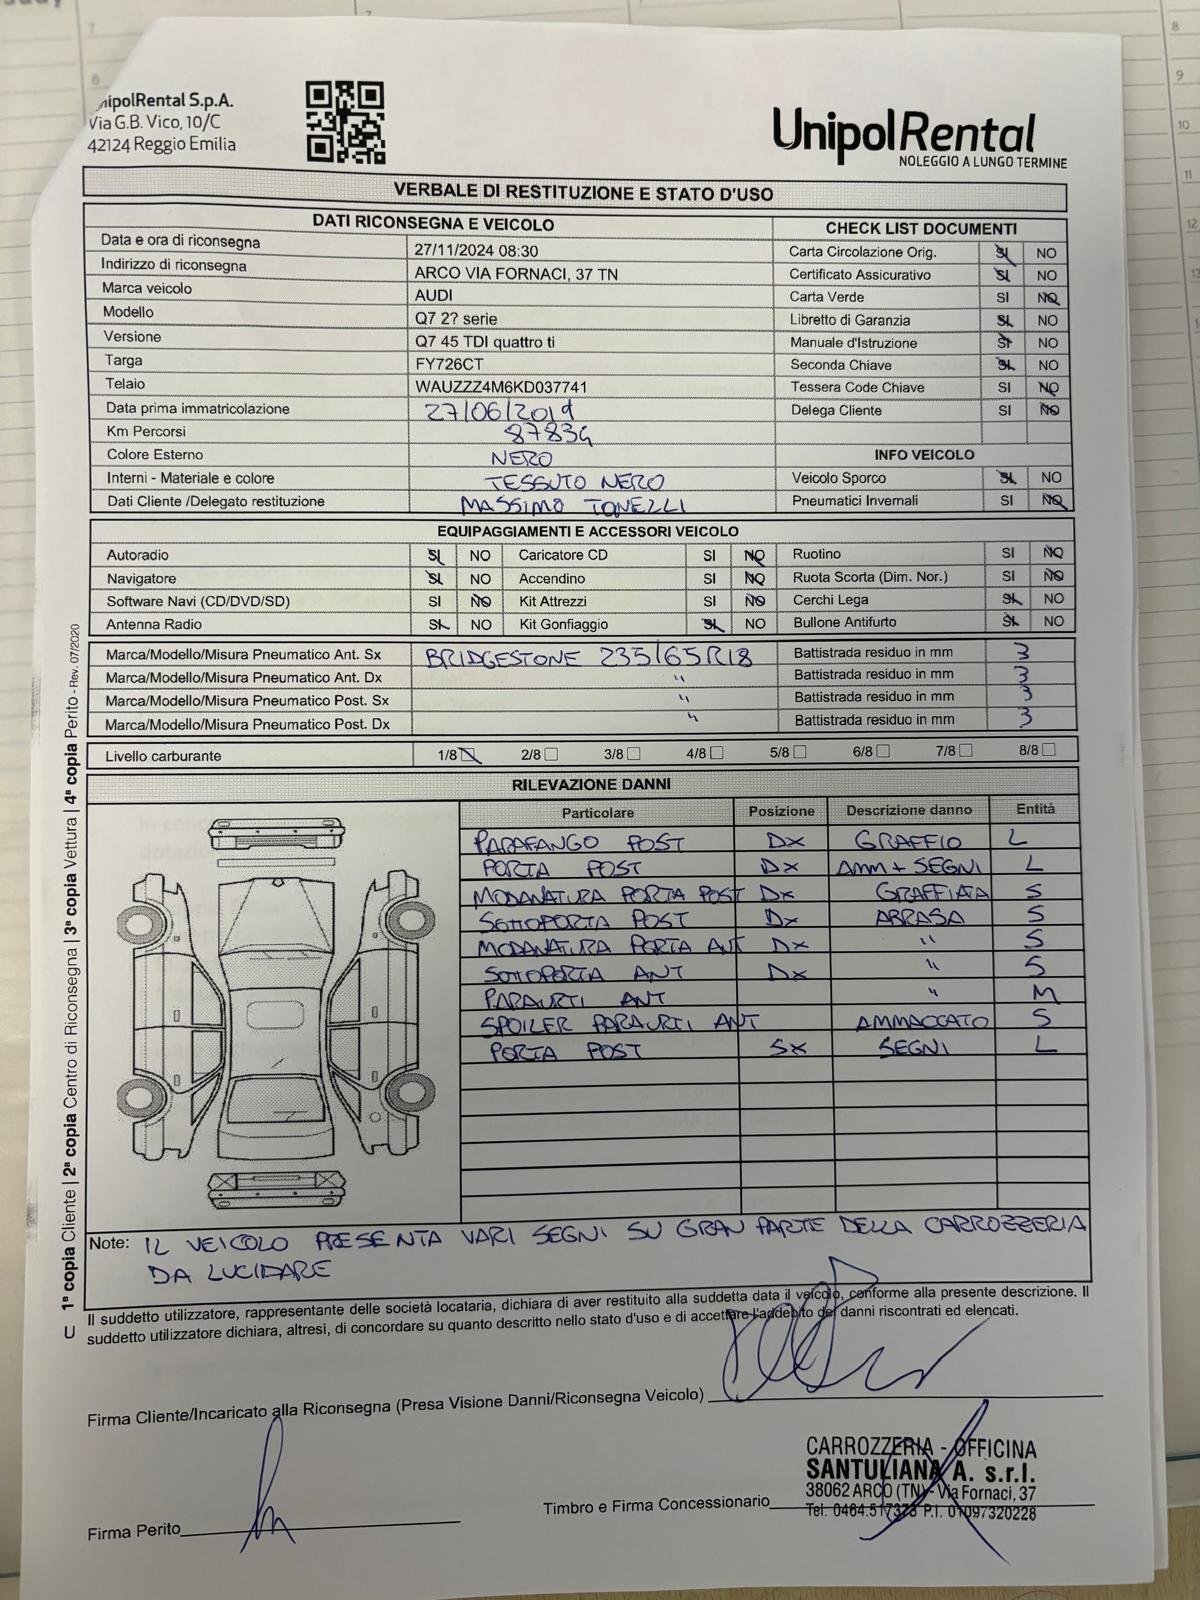 nipolRental S.p.A.
Via G.B. Vico, 10/C
42124 Reggio Emilia
UnipolRental
NOLEGGIO A LUNGO TERMINE
VERBALE DI RESTITUZIONE E STATO D'USO
DATI RICONSEGNA E VEICOLO CHECK LIST DOCUMENTI
Data e ora di riconsegna 27/11/2024 08:30 Carta Circolazione Orig. SI NO
Indirizzo di riconsegna ARCO VIA FORNACI, 37 TN Certificato Assicurativo SI NO
Marca veicolo AUDI Carta Verde SI NO
Modello Q7 2? serie Libretto di Garanzia SI NO
Versione Q7 45 TDI quattro ti Manuale d'Istruzione SI NO
Targa FY726CT Seconda Chiave SI NO
Telaio WAUZZZ4M6KD037741 Tessera Code Chiave SI NO
Data prima immatricolazione 27/06/2019 Delega Cliente SI NO
Km Percorsi 87834
Colore Esterno NERO INFO VEICOLO
Interni - Materiale e colore TESSUTO NERO Veicolo Sporco SI NO
Dati Cliente /Delegato restituzione MASSIMO TONELLI Pneumatici Invernali SI NO
EQUIPAGGIAMENTI E ACCESSORI VEICOLO
Autoradio SI NO Caricatore CD SI NO Ruotino SI NO
Navigatore SI NO Accendino SI NO Ruota Scorta (Dim. Nor.) SI NO
Software Navi (CD/DVD/SD) SI NO Kit Attrezzi SI NO Cerchi Lega SI NO
Antenna Radio SI NO Kit Gonfiaggio SI NO Bullone Antifurto SI NO
Marca/Modello/Misura Pneumatico Ant. Sx BRIDGESTONE 235/65R18 Battistrada residuo in mm 3
Marca/Modello/Misura Pneumatico Ant. Dx " Battistrada residuo in mm 3
Marca/Modello/Misura Pneumatico Post. Sx " Battistrada residuo in mm 3
Marca/Modello/Misura Pneumatico Post. Dx " Battistrada residuo in mm 3
Livello carburante 1/8 2/8 3/8 4/8 5/8 6/8 7/8 8/8
RILEVAZIONE DANNI
Particolare Posizione Descrizione danno Entità
PARAFANGO POST Dx GRAFFIO L
PORTA POST Dx AMM + SEGNI L
MODANATURA PORTA POST Dx GRAFFIATA S
SOTTOPORTA POST Dx ABRASA S
MODANATURA PORTA ANT Dx " S
SOTTOPORTA ANT Dx " S
PARAURTI ANT " M
SPOILER PARAURTI ANT AMMACCATO S
PORTA POST SX SEGNI L
Note: IL VEICOLO PRESENTA VARI SEGNI SU GRAN PARTE DELLA CARROZZERIA
DA LUCIDARE
Il suddetto utilizzatore, rappresentante delle società locataria, dichiara di aver restituito alla suddetta data il veicolo, conforme alla presente descrizione. Il
suddetto utilizzatore dichiara, altresì, di concordare su quanto descritto nello stato d'uso e di accettare l'addebito dei danni riscontrati ed elencati.
Firma Cliente/Incaricato alla Riconsegna (Presa Visione Danni/Riconsegna Veicolo)
CARROZZERIA - OFFICINA
SANTULIANA A. s.r.l.
38062 ARCO (TN) - Via Fornaci, 37
Tel. 0464.517373 P.I. 01097320228
Timbro e Firma Concessionario
Firma Perito
U 1ª copia Cliente | 2ª copia Centro di Riconsegna | 3ª copia Vettura | 4ª copia Perito - Rev. 07/2020